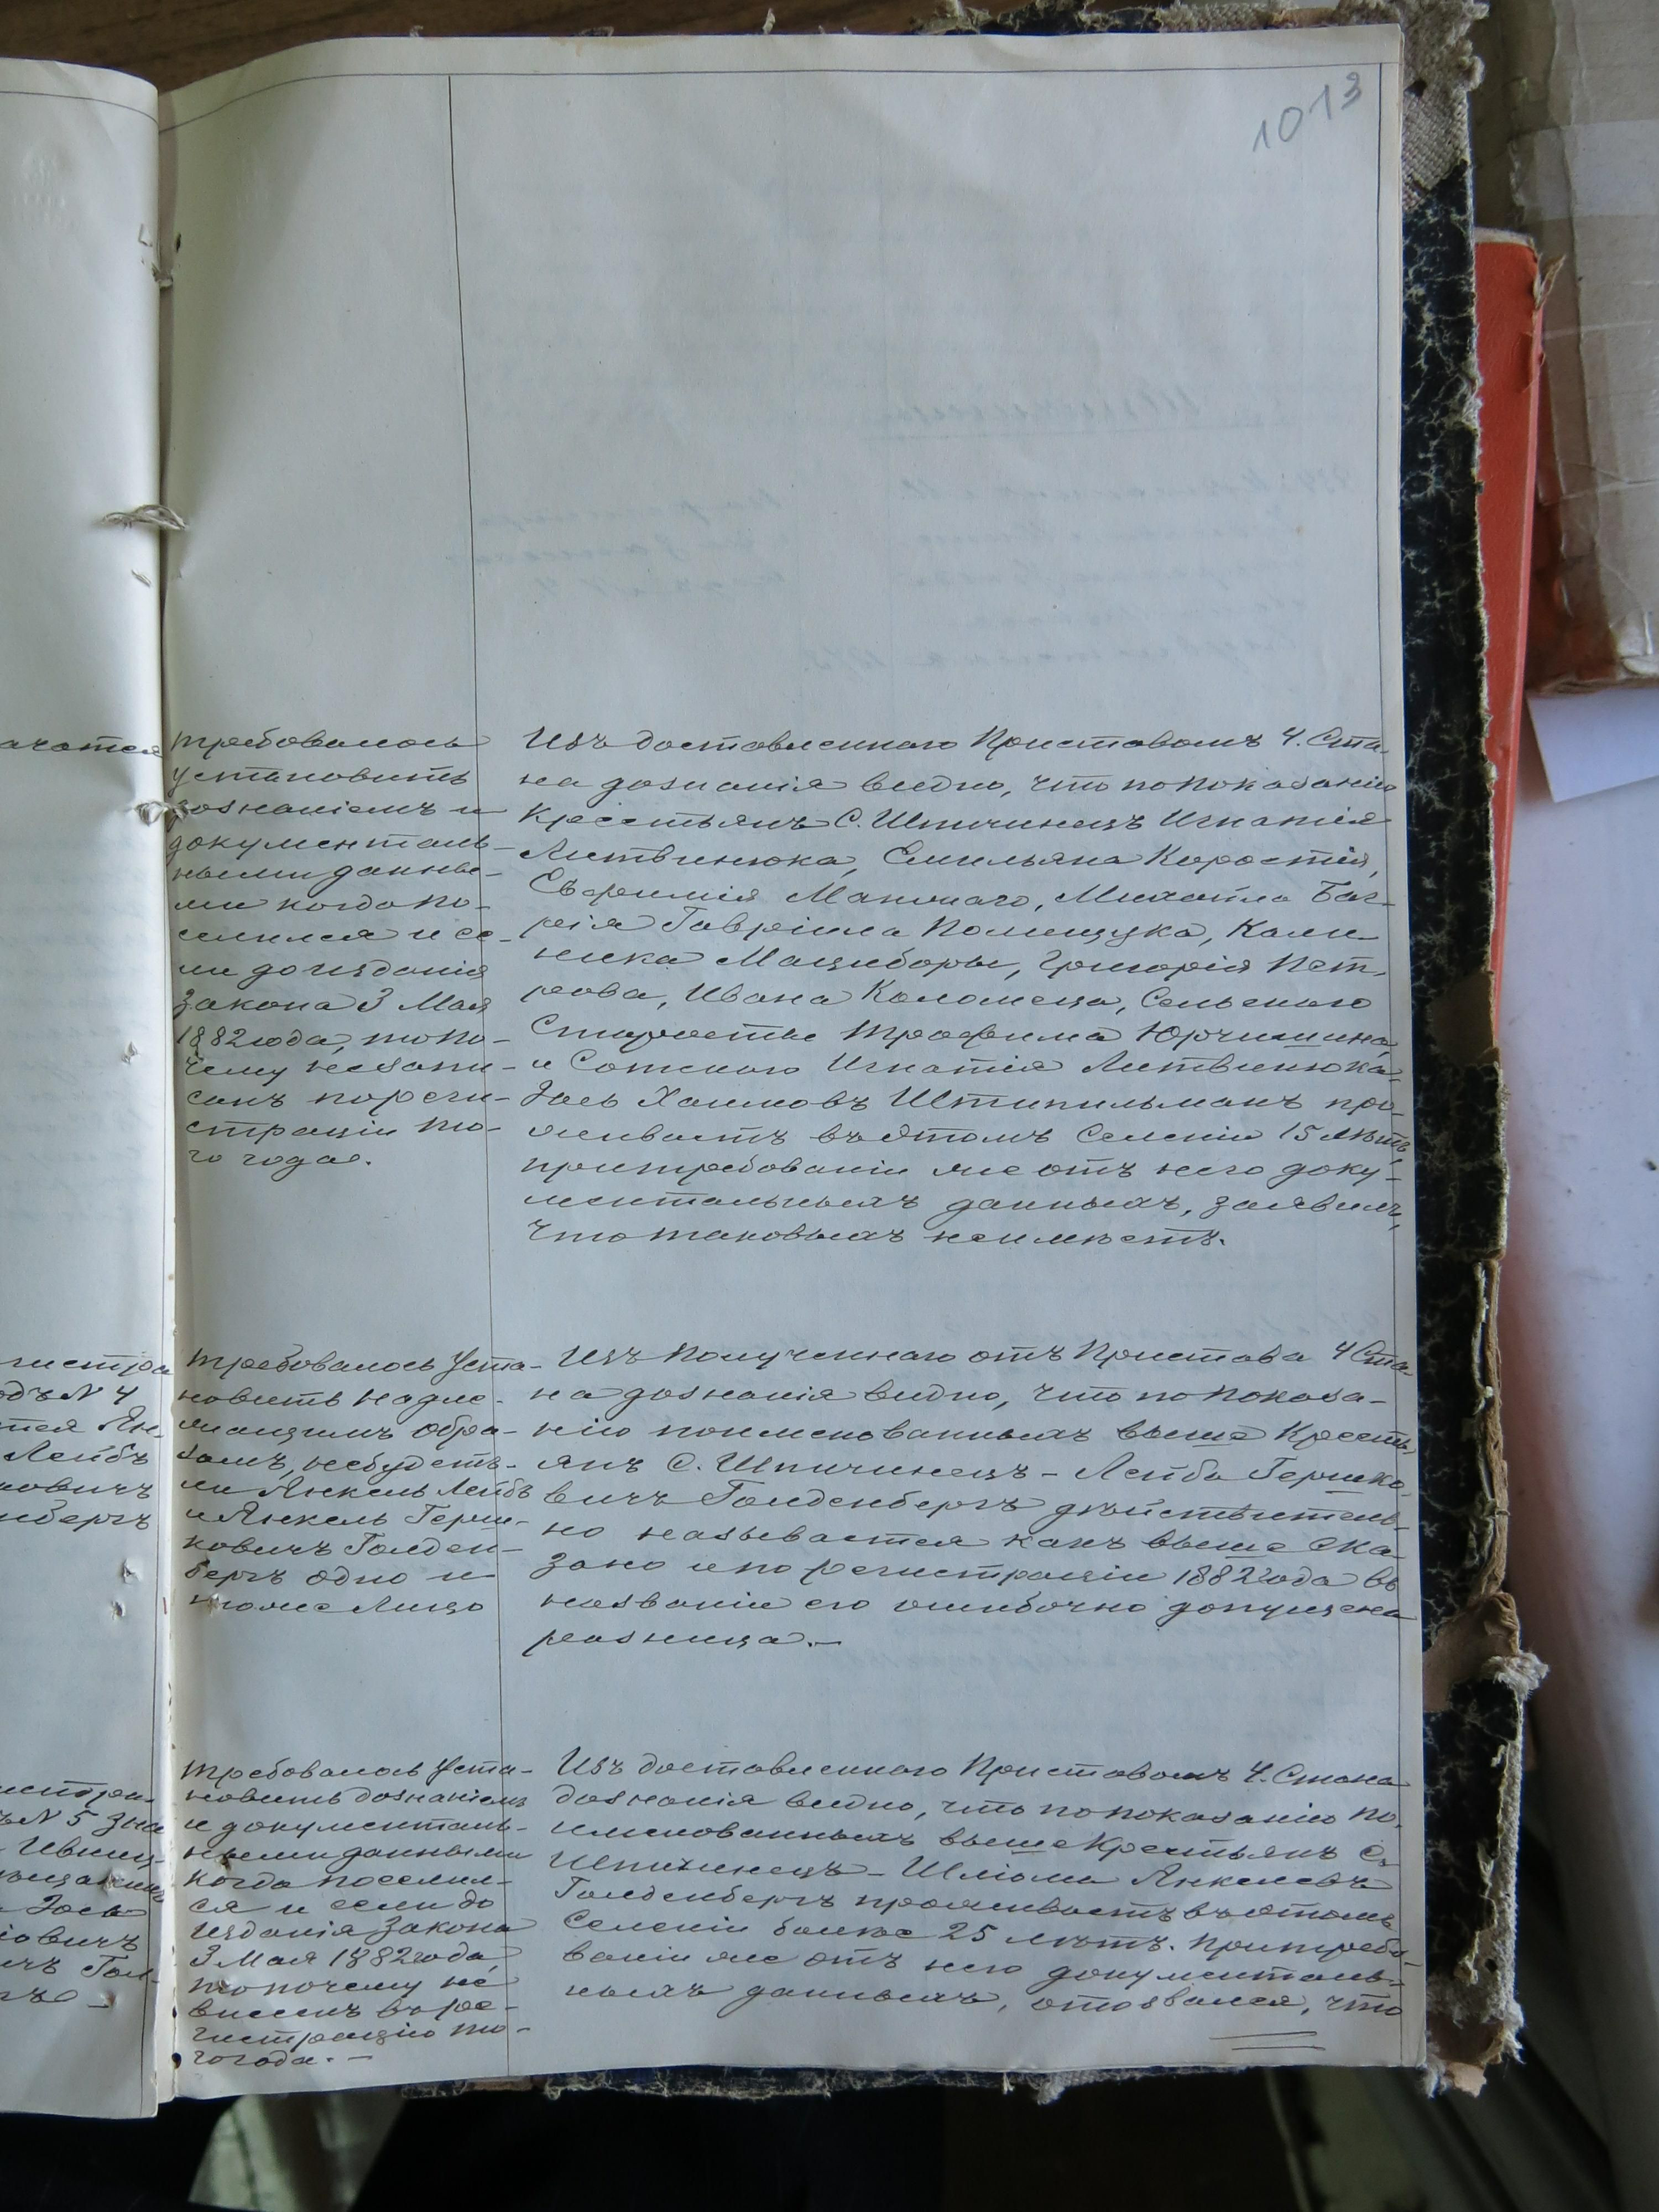 1013
требовалось
установить
дознаніемъ и
документаль-
ными данны-
ми когда по-
селился и ес-
ли до изданія
закона 3 Мая
1882 года, то по-
чему не запи-
санъ по реги-
страціи то-
го года.
Изъ доставленнаго Приставомъ 4. Ста-
на дознанія видно, что по показанію
Крестьянъ С. Шпичинецъ Игнатія
Литвинюка, Емильяна Коростія,
Евфимія Манчаго, Михаила Баг-
рія Гавріила Полищука, Кали-
ника Мациборы, Григорія Пет-
рова, Ивана Коломеца, Сельскаго
Старосты Трофима Юрчишина,
и Сотскаго Игнатія Литвинюка-
Зось Хаимовъ Штипильманъ про-
живаетъ въ этомъ Селеніи 15 лѣтъ,
при требованіи же отъ него доку-
ментальныхъ данныхъ, заявилъ,
что таковыхъ неимѣетъ.
требовалось уста-
новить надле-
жащимъ обра-
зомъ, небудетъ-
ли Янкель Лейбъ
и Янкель Герш-
ковичъ Голден-
бергъ одно и
тоже Лицо
Изъ полученнаго отъ Пристава 4 Ста-
на дознанія видно, что по показа-
нію поименованныхъ выше Кресть-
янъ С. Шпичинецъ - Лейба Гершко-
вичъ Голденбергъ дѣйствитель-
но называется какъ выше ска-
зано и по регистраціи 1882 года въ
названіи его ошибочно допущена
разница. —
требовалось уста-
новить дознаніемъ
и документаль-
ными данными
когда поселил-
ся и если до
изданія закона
3 Мая 1882 года,
то почему не
внесенъ въ ре-
гистрацію то-
го года. —
Изъ доставленнаго Приставомъ 4. Стана
дознанія видно, что по показанію по-
именованныхъ выше Крестьянъ С.
Шпичинецъ - Шліома Янкелевъ
Голденбергъ проживаетъ въ этомъ
Селеніи болѣе 25 лѣтъ. При требо-
ваніи же отъ него документаль-
ныхъ данныхъ, отозвался, что